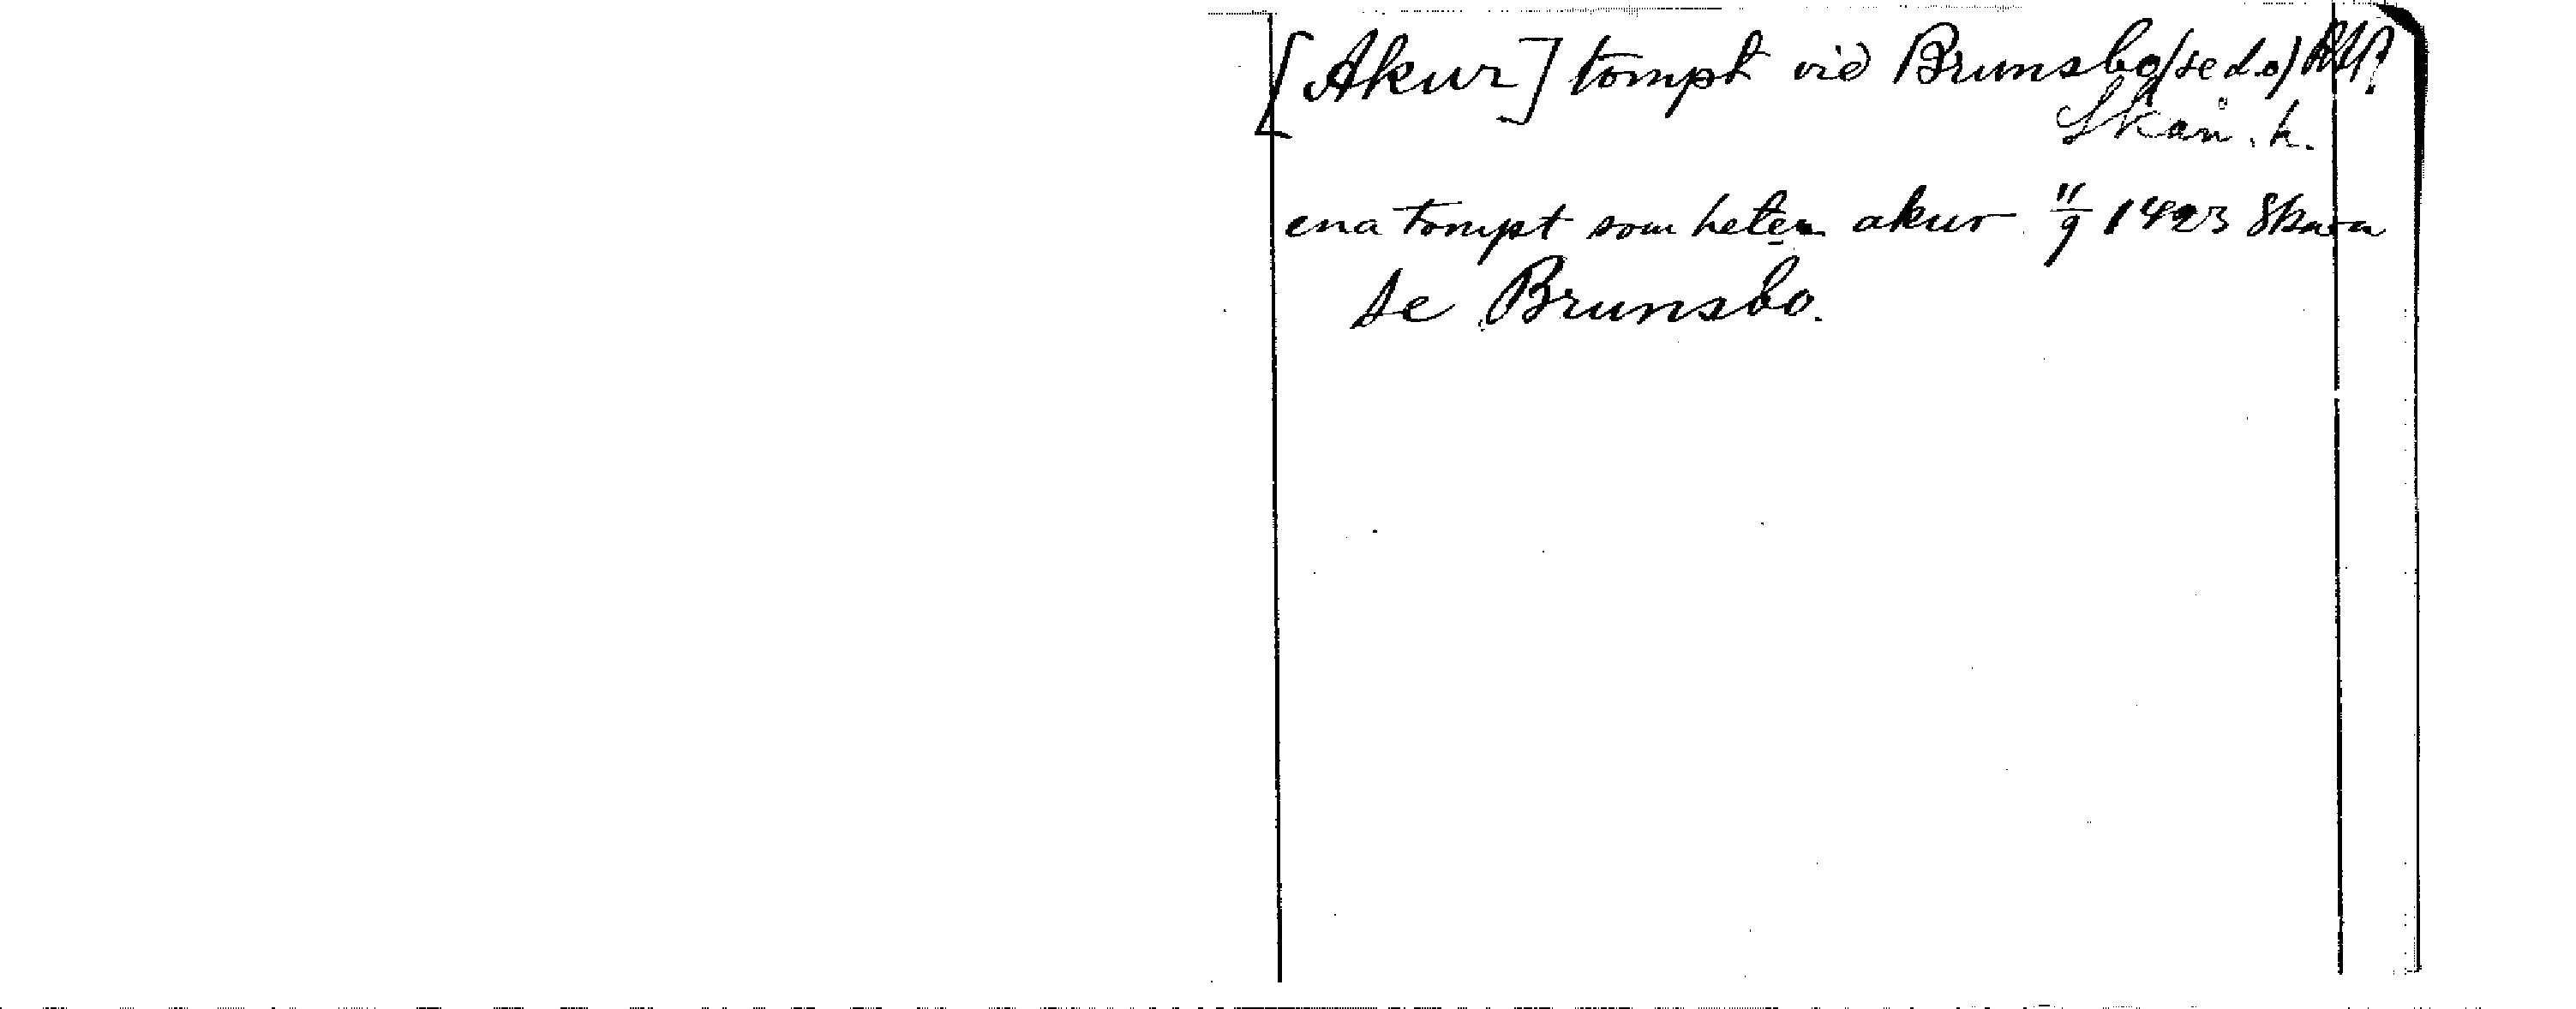 [Akur] tompt vid Brunsbo (se d.o)
Skån. h.
ena tompt som heter akur 11/9 1423 Skara
se Brunsbo.